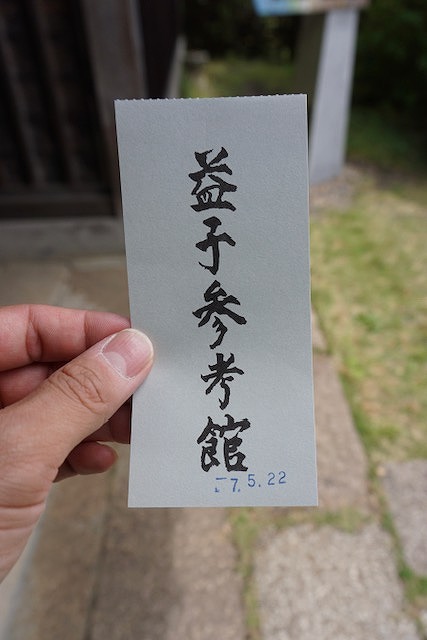 益子参考館
7.5.22